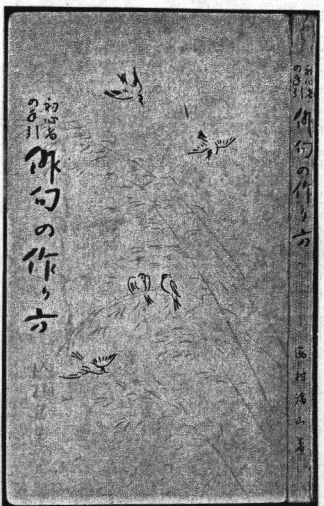 初心者
の手引
俳句の作り方
初心者
の手引
俳句の作り方
西村 山著